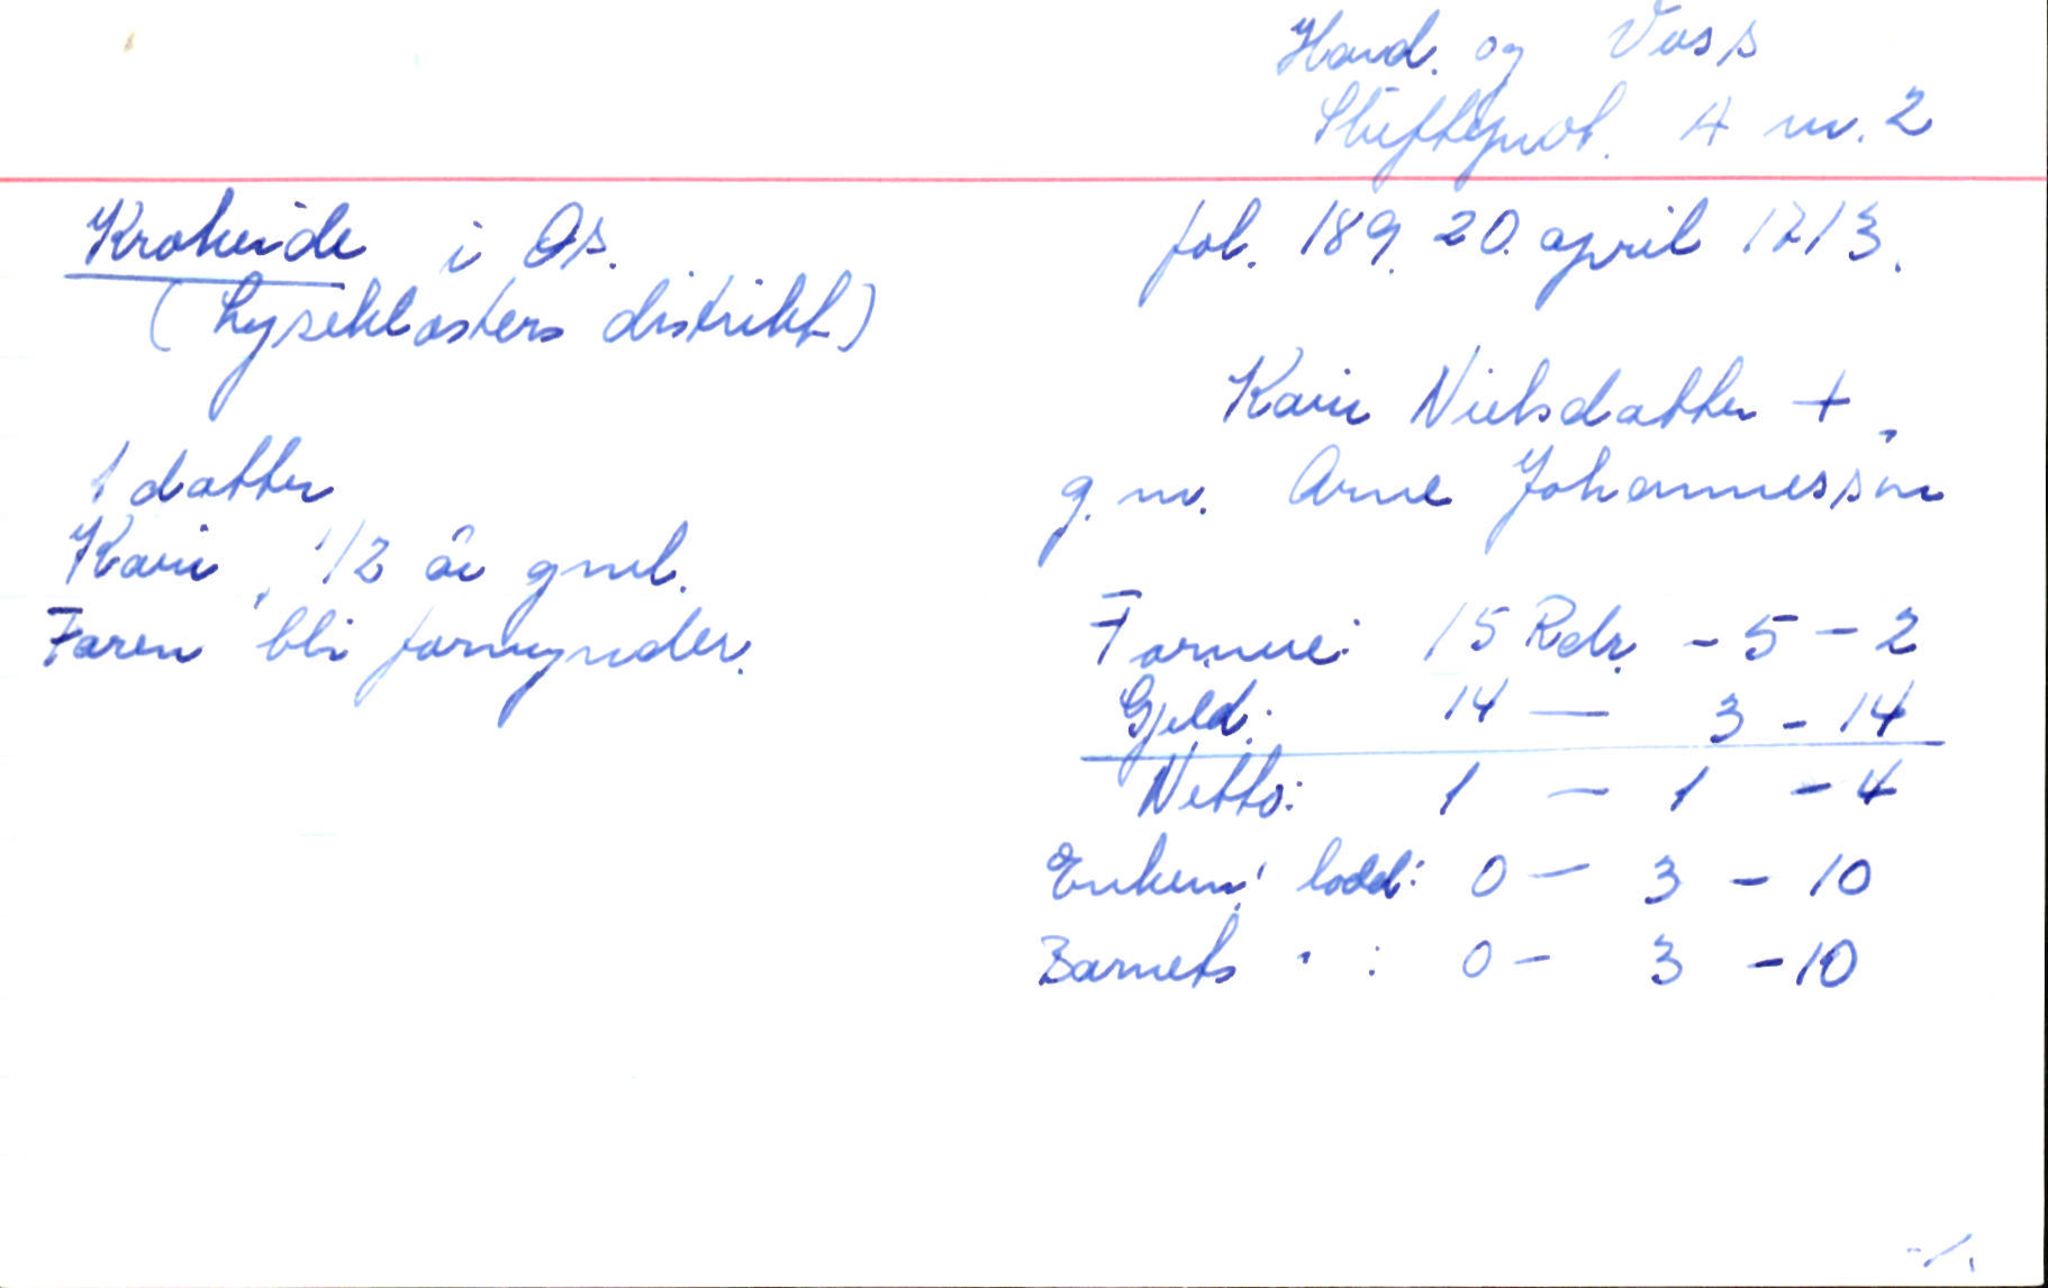 Hard. og Voss
Skifteprot. A nr. 2
Krokeide i Os.
(Lyseklosters distrikt)
fol. 189. 20. april 1713.
Kari Nielsdatter +,
g.m. Arne Johannessen
1 datter
Kari, 1/2 år gml.
Faren bli formynder.
Formue: 15 Rdr. - 5 - 2
Gjeld: 14 — 3 - 14
Netto: 1 — 1 - 4
lodd: 0 — 3 - 10
Barnets " : 0 - 3 - 10